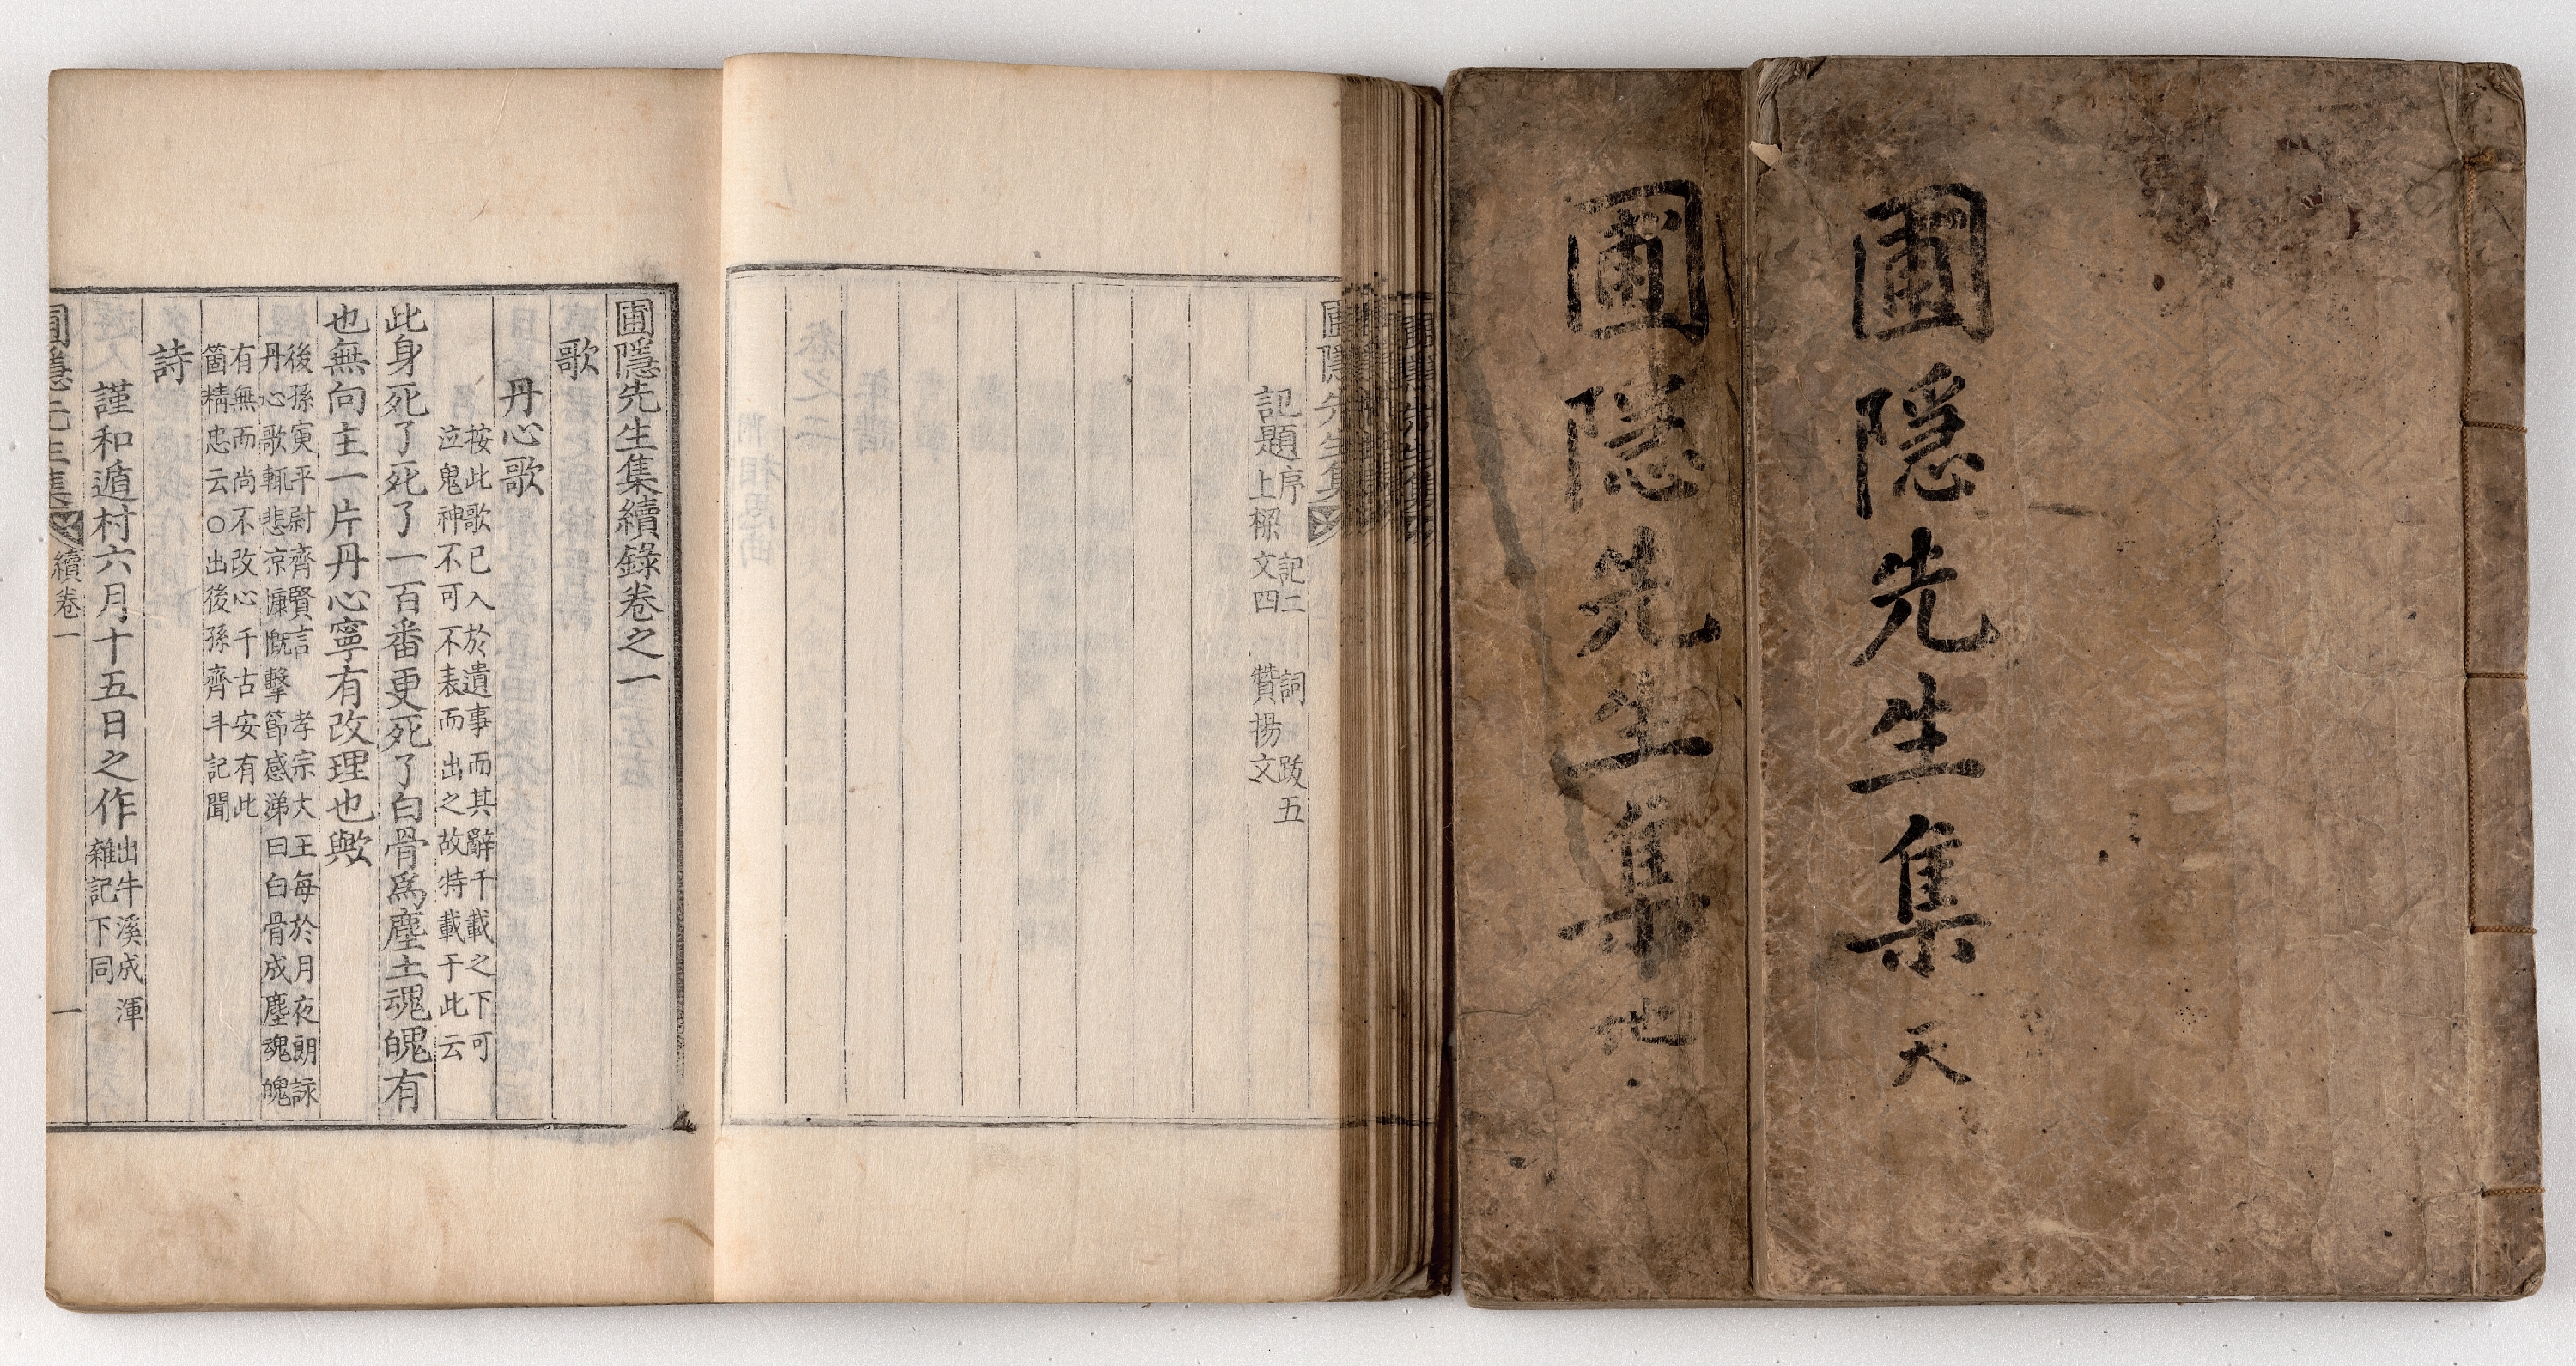 圃隱先生集 天
圃隱先生集 地
記題序 記二 詞 跋五
上樑文四 贊揚文
圃隱先生集續錄卷之一
歌
丹心歌
按此歌已入於遺事而其辭千載之下可
泣鬼神不可不表而出之故特載于此云
此身死了死了一百番更死了白骨爲塵土魂魄有
也無向主一片丹心寧有改理也歟
後孫寅平尉齊賢言 孝宗大王每於月夜朗詠
丹心歌輒悲凉慷慨擊節感涕曰白骨成塵魂魄
有無而尚不改心千古安有此
箇精忠云○出後孫齊斗記聞
詩
謹和遁村六月十五日之作 出牛溪成渾
雜記下同
圃隱先生集 續卷一 一